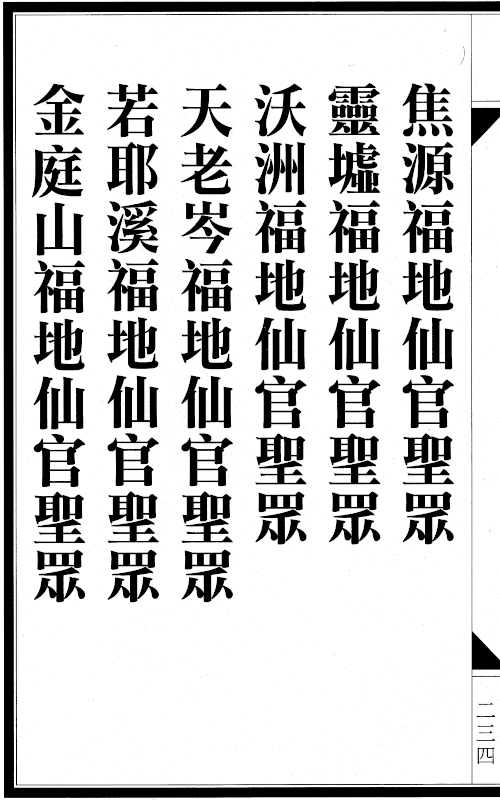 焦源福地仙官聖眾
靈墟福地仙官聖眾
沃洲福地仙官聖眾
天老岑福地仙官聖眾
若耶溪福地仙官聖眾
金庭山福地仙官聖眾
二三四